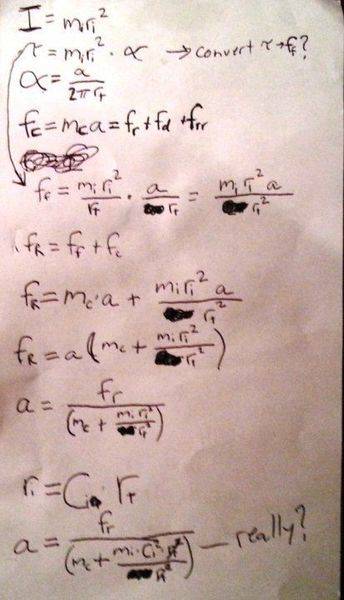 I = mᵢrᵢ²
τ = mᵢrᵢ² · α → convert τ→fₜ?
α = a / 2π rₜ
f_c = m_c a = f_r + f_d + f_rr
fₜ = mᵢrᵢ² / rₜ · a / rₜ = mᵢrᵢ² a / rₜ²
f_R = fₜ + f_c
f_R = m_c · a + mᵢrᵢ² a / rₜ²
f_R = a (m_c + mᵢrᵢ² / rₜ²)
a = f_r / (m_c + mᵢrᵢ² / rₜ²)
rᵢ = Cᵢ · rₜ
a = f_r / (m_c + mᵢ · Cᵢ² · rₜ² / rₜ²) — really?